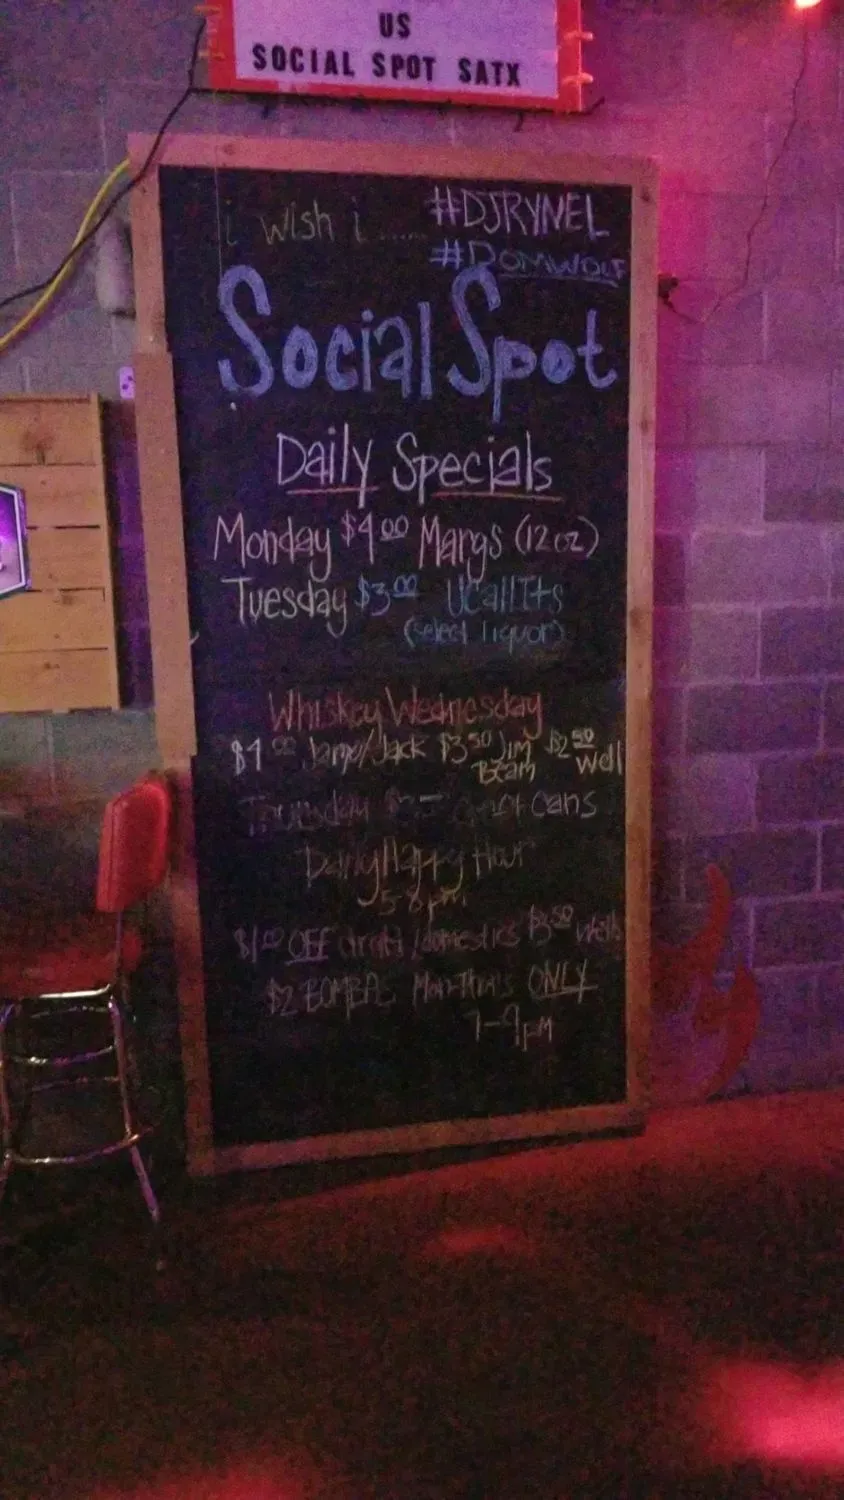 US
SOCIAL SPOT SATX
i wish i ...... #DJRYNEL
#DOMWOLF
Social Spot
Daily Specials
Monday $4.00 Margs (12oz)
Tuesday $3.00 UCallIts
(select liquor)
Whiskey Wednesday
$4.00 Jamo/Jack $3.50 Jim Beam $2.50 Well
Thursday cans
Daily Happy Hour
5-8pm
$1.00 OFF draft/domestics $3.50 Wells
$2 BOMBAS Mon-Thurs ONLY
7-9pm